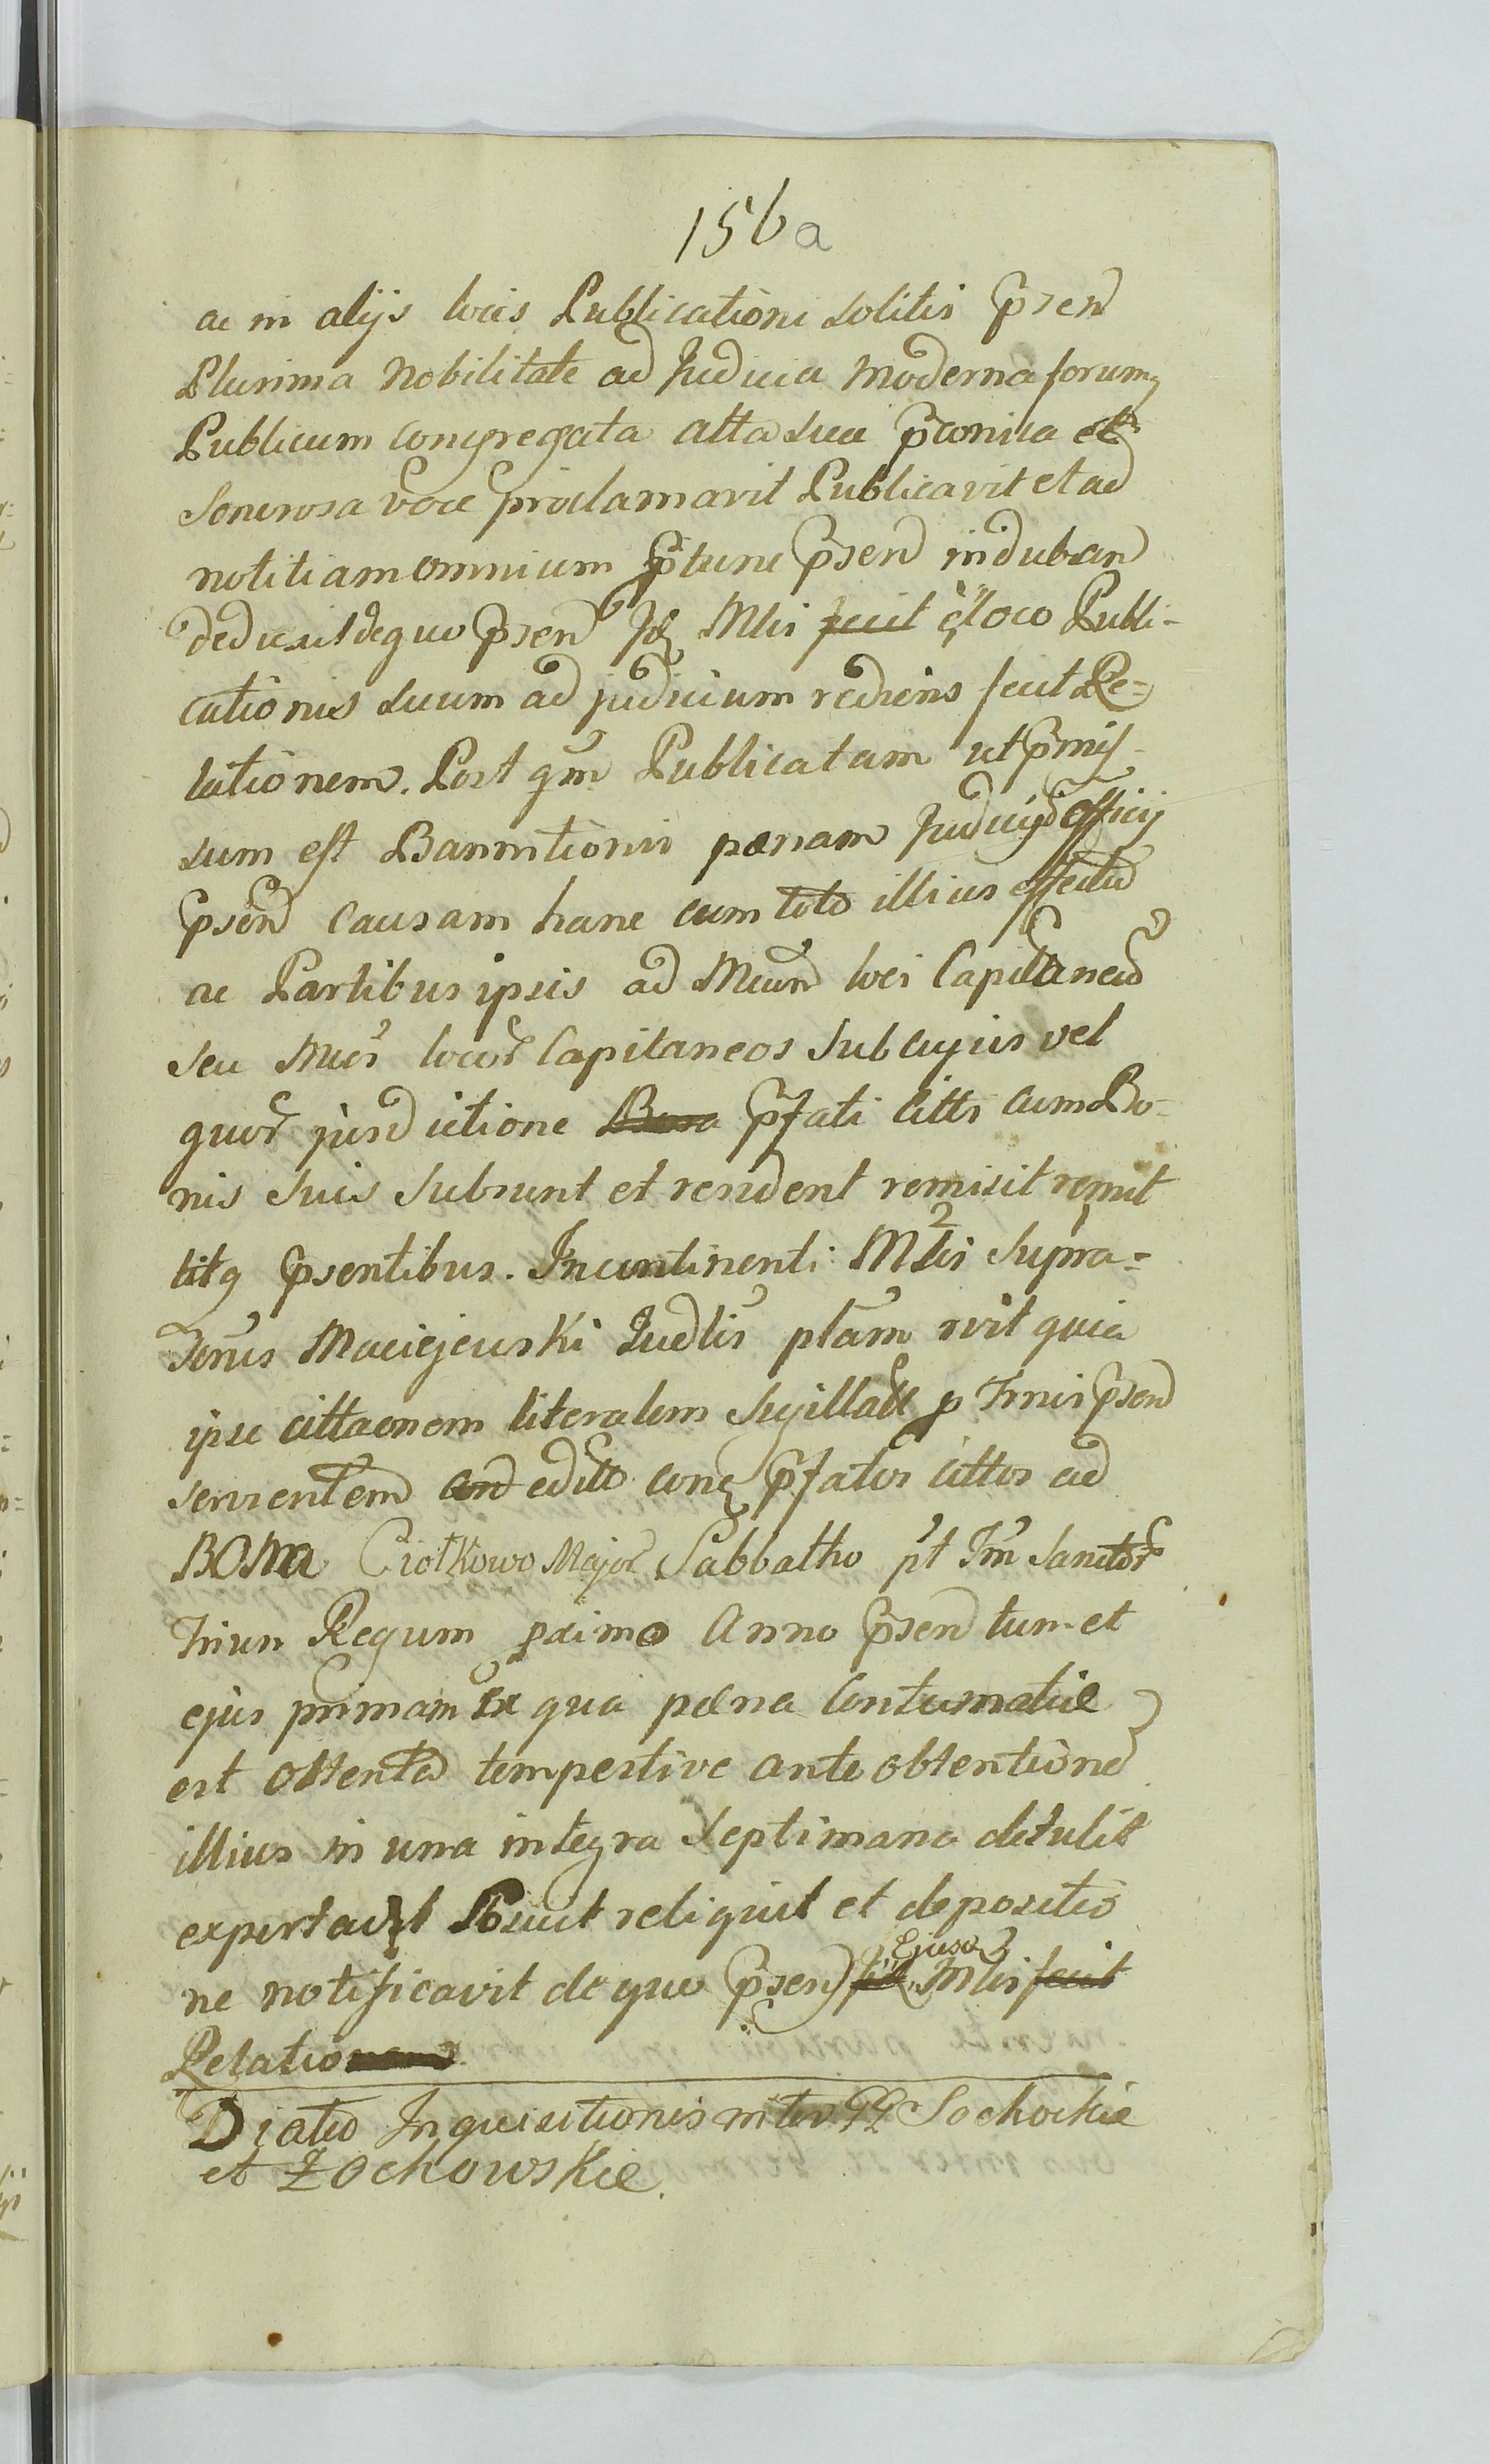 156a
ac in alijs locis Publicationi solitis p̃sen
Plurima Nobilitate ad Judicia moderna forumq
Publicum congregata alta sua p̃conica et
sonorosa voce proclamavit Publicavit et ad
notitiam omnium p̃tunc p̃sen indubian
deduxit de quo p̃sen Mlis fecit è loco Publi-
cationis suum ad judicium rediens fecit Re=
lationem. Post qm̃ Publicatam ut p̃mis-
sum est Bannitionis pœnam Judicij officij
p̃sen causam hanc cum toto illius effectu
ac Partibus ipsis ad Mcum loci Capitaneũ
seu Mcos locor Capitaneos sub cujus vel
quor jurisdictione Bona p̃fati citti cum Bo-
nis suis subsunt et resident remisit remit
titq p̃sentibus. Incontinenti Mlis 2 supra=
Jonus Maciejewski Judlis ptam rvit quia
ipse cittaonem literalem sigillatã p Trnis p̃sen
servientem edittã conq p̃fatos cittos ad
BOna Ciołkowo Major Sabbatho p̃t Fm̃ Sanctor
Trium Regum pximo Anno p̃sen tum et
ejus primam Ex qua pœna Contumatiæ
est obtenta tempestive ante obtentionẽ
illius in una integra septimana detulit
exportavit Posuit reliquit et depositio
ne notificavit de quo p̃sen Ejusd Mlis fecit
Relatio
Dictio Inquisitionis inter GG Sochockie
et Żochowskie.